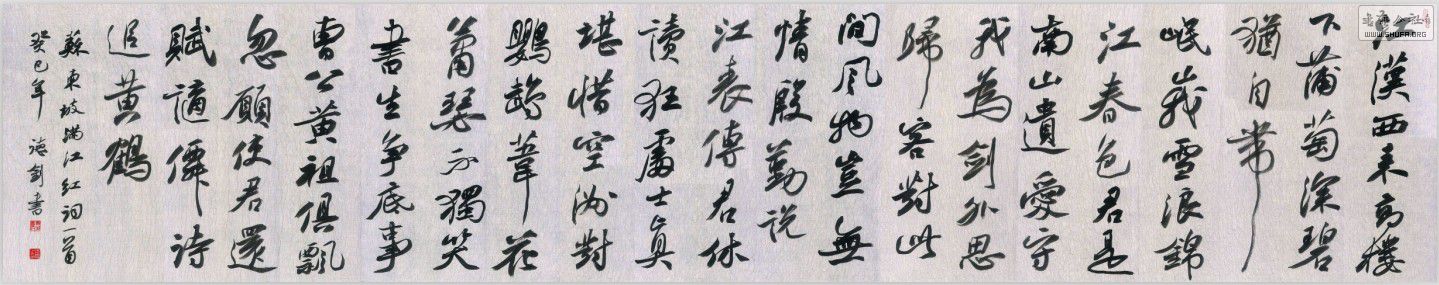 江漢西来高樓
下蒲萄深碧
猶自帶
岷峩雪浪錦
江春色君是
南山遺愛守
我為劍外思
歸客對此
間風物豈無
情殷勤説
江表傳君休
讀狂處士真
堪惜空洲對
鸚鵡葦花
蕭瑟不獨笑
書生争底事
曹公黄祖俱飄
忽願使君還
賦謫僊詩
追黄鶴
蘇東坡滿江紅詞一首
癸巳年 劍書
書法公社
WWW.SHUFA.ORG